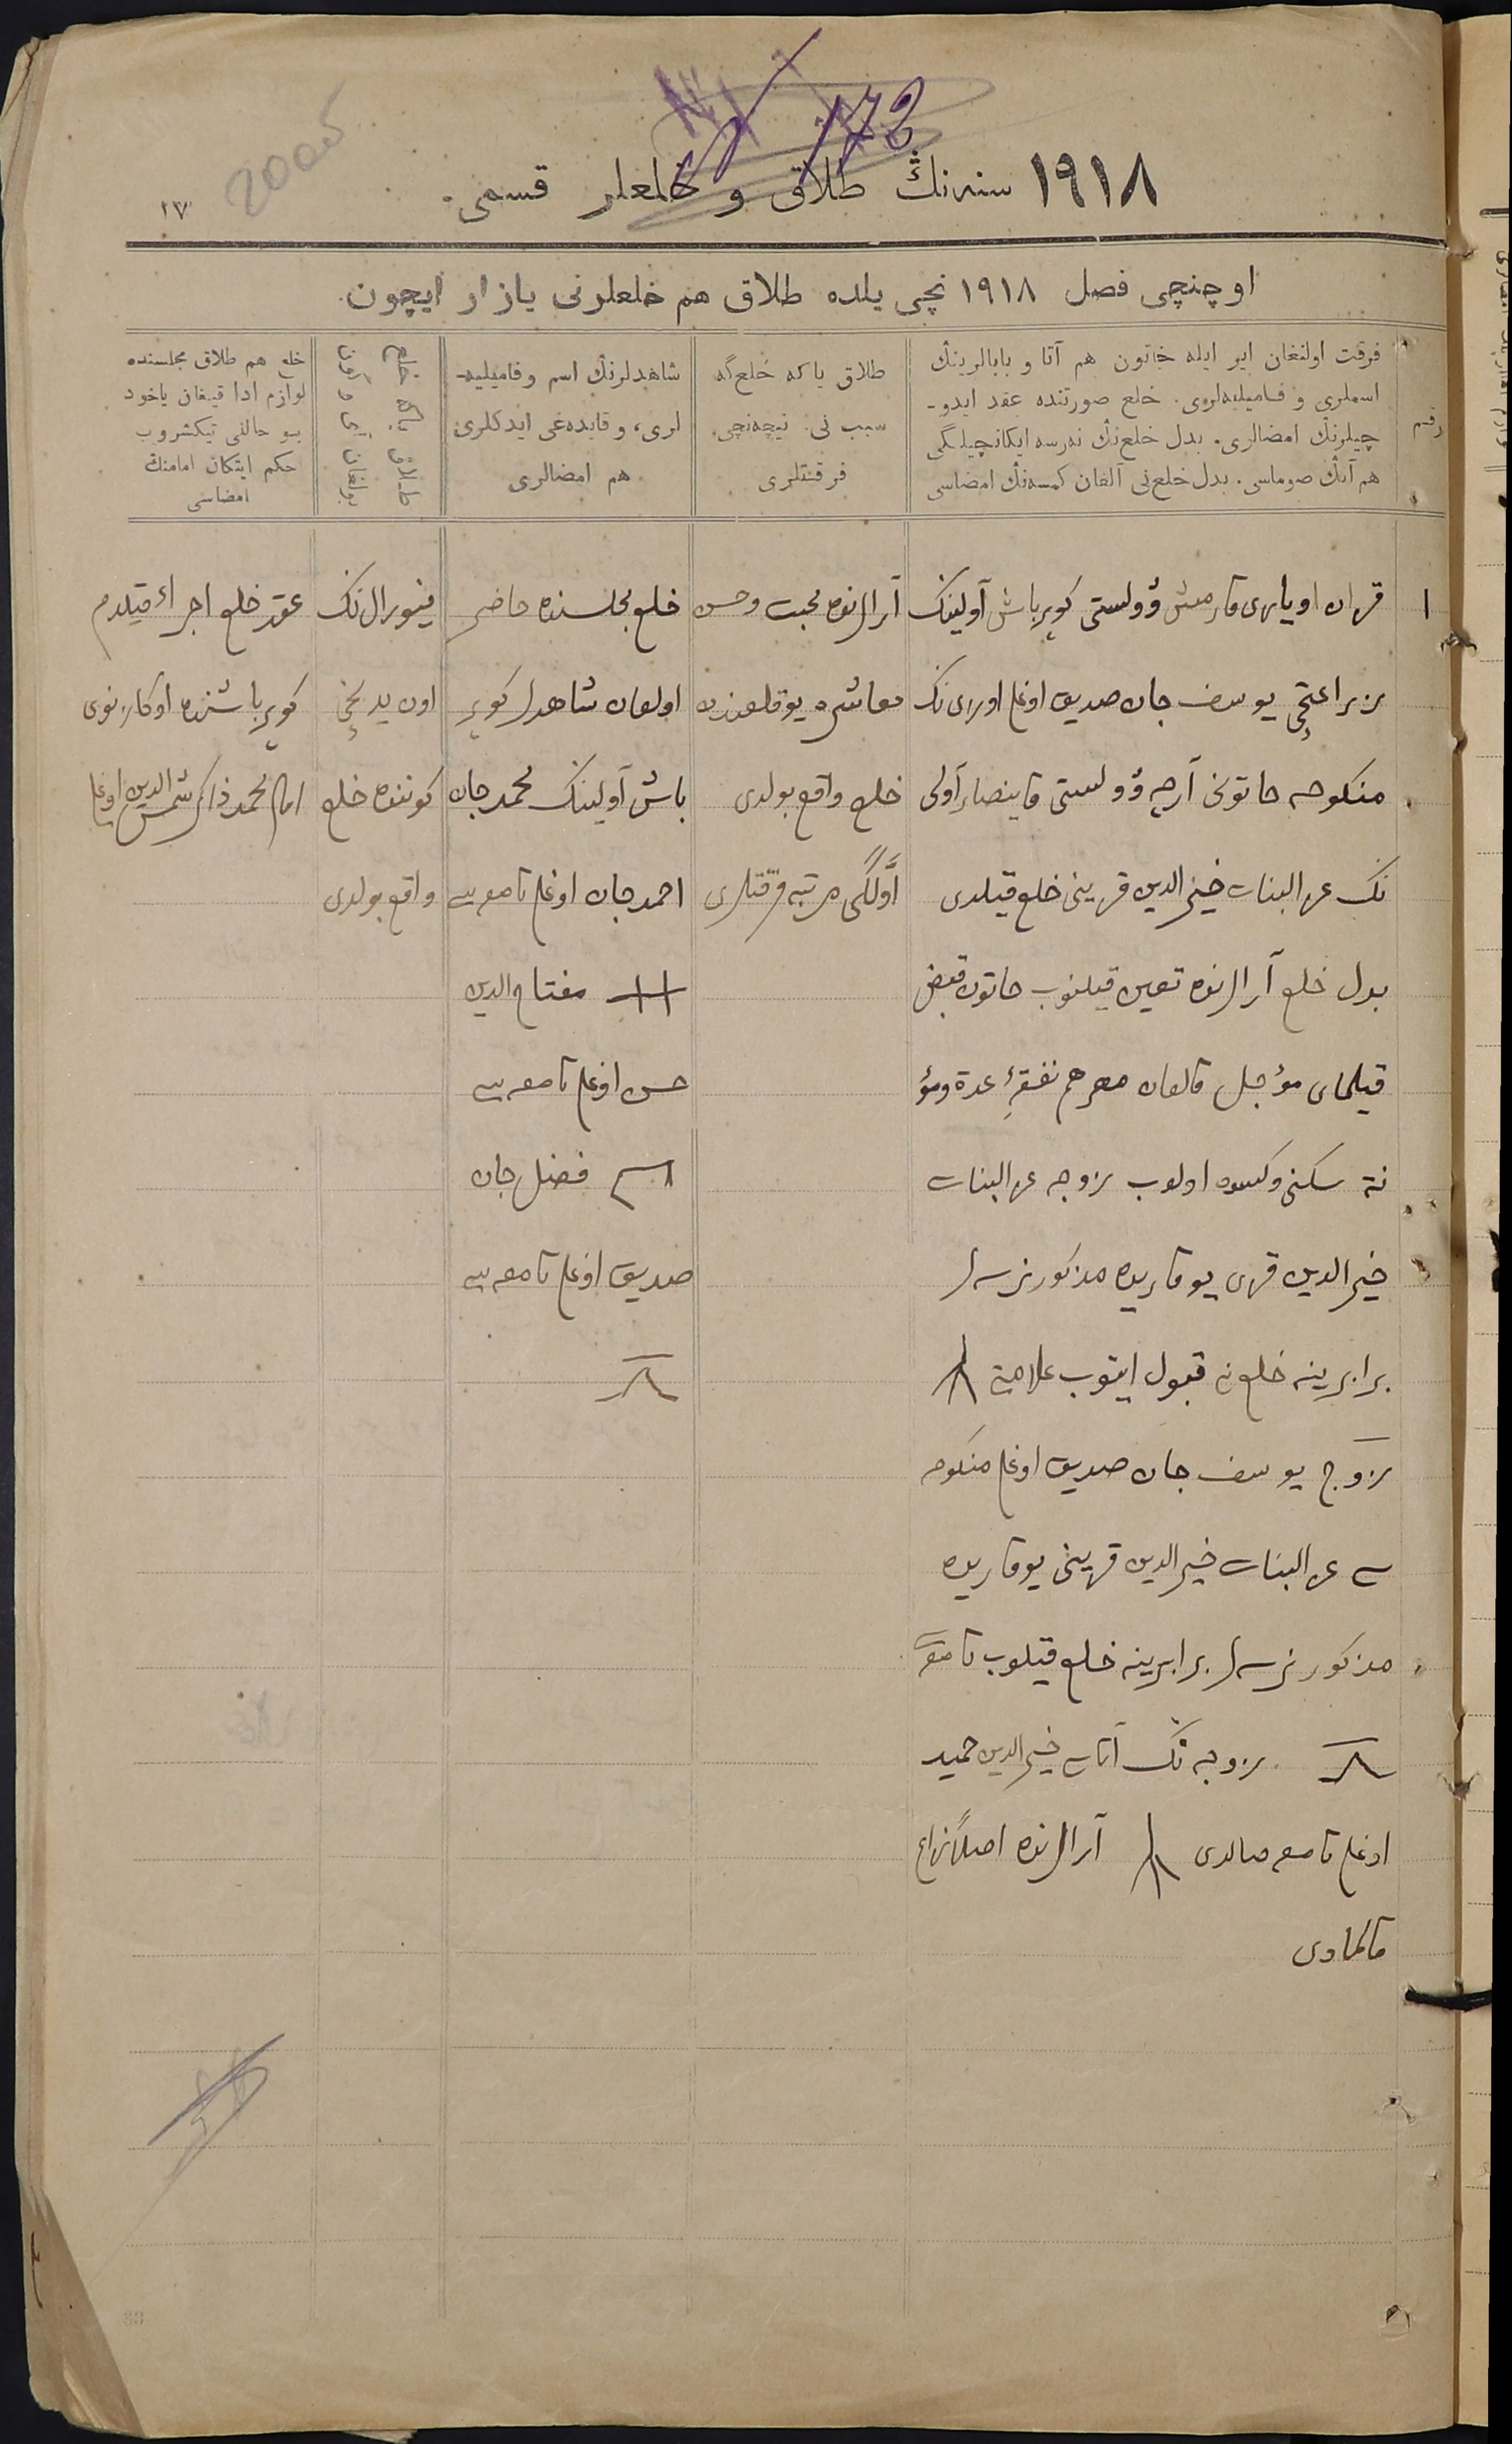 172
2000
١٩١٨ سنه‌نڭ طلاق و خلعلر قسمی.
١٧
اوچنچی فصل ١٩١٨ نچی یلده طلاق هم خلعلرنی یازار ایچون.
رقم
فرقت اولنغان ایر ایله خاتون هم آتا و بابالرینڭ
اسملری و فامیلیه‌لری. خلع صورتنده عقد ایدو-
چیلرنڭ امضالری. بدل خلع‌نڭ نه‌رسه ایکانچیلگی
هم آنڭ صوماسی. بدل خلع‌نی آلغان کمسه‌نڭ امضاسی
طلاق یا که خلع‌گه
سبب نی. نیچه‌نچی
فرقتلری
شاهدلرنڭ اسم و فامیلیه-
لری، و قایده‌غی ایدکلری
هم امضالری
طلاق یا که خلع
بولغان ای و کون
خلع هم طلاق مجلسنده
لوازم ادا قیغان یاخود
بو حالنی تیکشروب
حکم ایتکان امامنڭ
امضاسی
١
قزان اویازی قارمش وولستی کویرباش آولینڭ
یوسف جان صدیق اوغلی اوزی نڭ
منکوحه خاتونی آرچه وولستی آولی
نڭ البنات خیر الدین قزینی خلع قیلدی
بدل خلع آرالرنده تعیین قیلنوب خاتون قبض
قیلمای مؤجل قالغان مهر هم نفقۀ عدة و مؤ
نة سکنی وکسوه اولوب زوجه البنات
خیر الدین قزی یوقاریده مذکور نرسه‌لر
برابرینه خلع نی قبول ایتوب علامتی
زوج یوسف جان صدیق اوغلی منکوحه
سی البنات خیر الدین قزینی یوقاریده
مذکور نرسه‌لر برابرینه خلع قیلوب تامغه
زوجه نڭ آتاسی خیر الدین حمید
اوغلی تامغه صالدی آرالرنده اصلاً نزاع
قالمادی
آرالرنده محبت و حسن
معاشره یوقلغندن
خلع واقع بولدی
اوّلگی مرتبه فرقتلری
خلع مجلسنده حاضر
اولغان شاهدلر کویر
باش آولینڭ محمد جان
احمد جان اوغلی تامغه سی
مفتاح الدین
حسن اوغلی تامغه سی
فضل جان
صدیق اوغلی تامغه سی
فیورال نڭ
اون یدنچی
کوننده خلع
واقع بولدی
عقد خلع اجراء قیلدم
کویر باشنده اوکازنوی
امام محمد ذاکر شمس الدین اوغلی